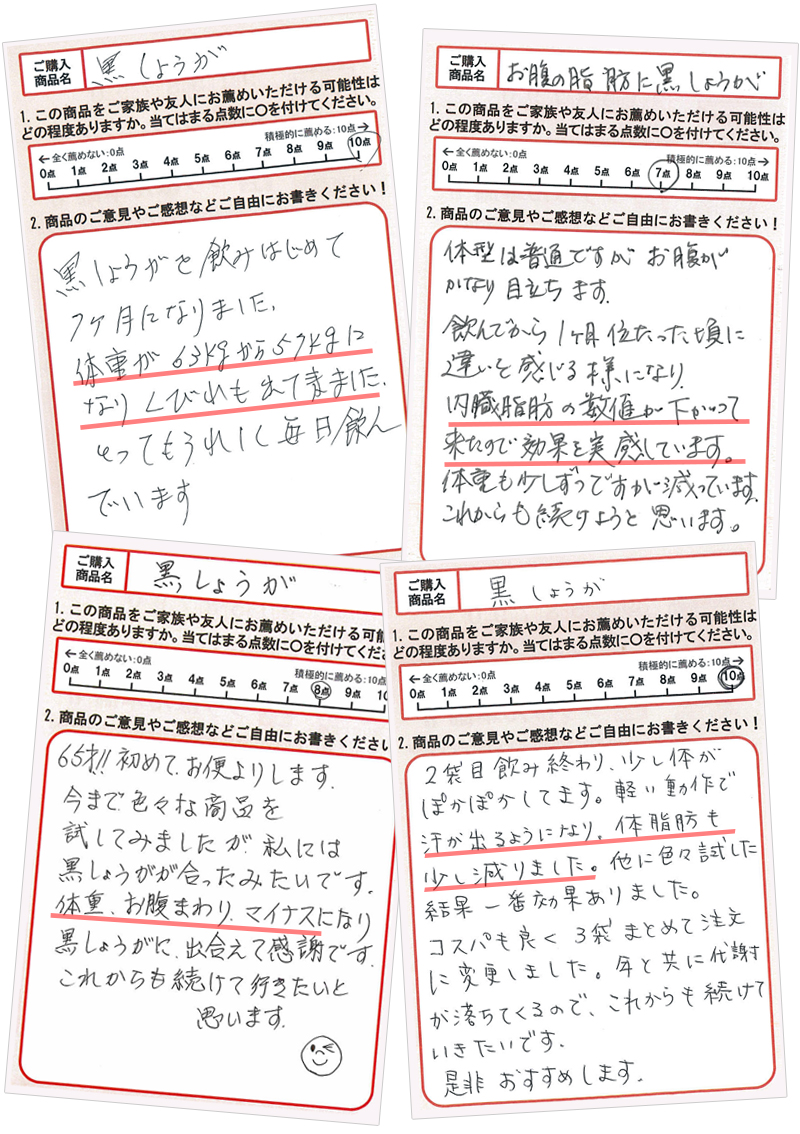 ご購入
商品名
黒しょうが
1. この商品をご家族や友人にお薦めいただける可能性は
どの程度ありますか。当てはまる点数に〇を付けてください。
←全く薦めない:0点 積極的に薦める:10点→
0点 1点 2点 3点 4点 5点 6点 7点 8点 9点 10点
2. 商品のご意見やご感想などご自由にお書きください!
黒しょうがを飲みはじめて
7ヶ月になりました。
体重が63kgから57kgに
なりくびれも出てきました。
とってもうれしく毎日飲ん
でいます
ご購入
商品名
お腹の脂肪に黒しょうが
1. この商品をご家族や友人にお薦めいただける可能性は
どの程度ありますか。当てはまる点数に〇を付けてください。
←全く薦めない:0点 積極的に薦める:10点→
0点 1点 2点 3点 4点 5点 6点 7点 8点 9点 10点
2. 商品のご意見やご感想などご自由にお書きください!
体型は普通ですが お腹が
かなり目立ちます。
飲んでから1ヶ月位たった頃に
違いを感じる様になり、
内臓脂肪の数値が下がって
来たので効果を実感しています。
体重も少しずつですが減っています。
これからも続けようと思います。
ご購入
商品名
黒しょうが
1. この商品をご家族や友人にお薦めいただける可能
どの程度ありますか。当てはまる点数に〇を付けてくださ
←全く薦めない:0点 積極的に薦める:10点
0点 1点 2点 3点 4点 5点 6点 7点 8点 9点 10
2. 商品のご意見やご感想などご自由にお書きください
65才!! 初めてお便よりします。
今まで色々な商品を
試してみましたが 私には
黒しょうがが合ったみたいです。
体重、お腹まわり、マイナスになり
黒しょうがに、出合えて感謝です。
これからも続けて行きたいと
思います。
ご購入
商品名
黒しょうが
1. この商品をご家族や友人にお薦めいただける可能性は
どの程度ありますか。当てはまる点数に〇を付けてください。
←全く薦めない:0点 積極的に薦める:10点→
0点 1点 2点 3点 4点 5点 6点 7点 8点 9点 10点
2. 商品のご意見やご感想などご自由にお書きください!
2袋目飲み終わり、少し体が
ぽかぽかしてます。軽い動作で
汗が出るようになり、体脂肪も
少し減りました。他に色々試した
結果一番効果ありました。
コスパも良く 3袋まとめて注文
に変更しました。年と共に代謝
が落ちてくるので、これからも続けて
いきたいです。
是非おすすめします。